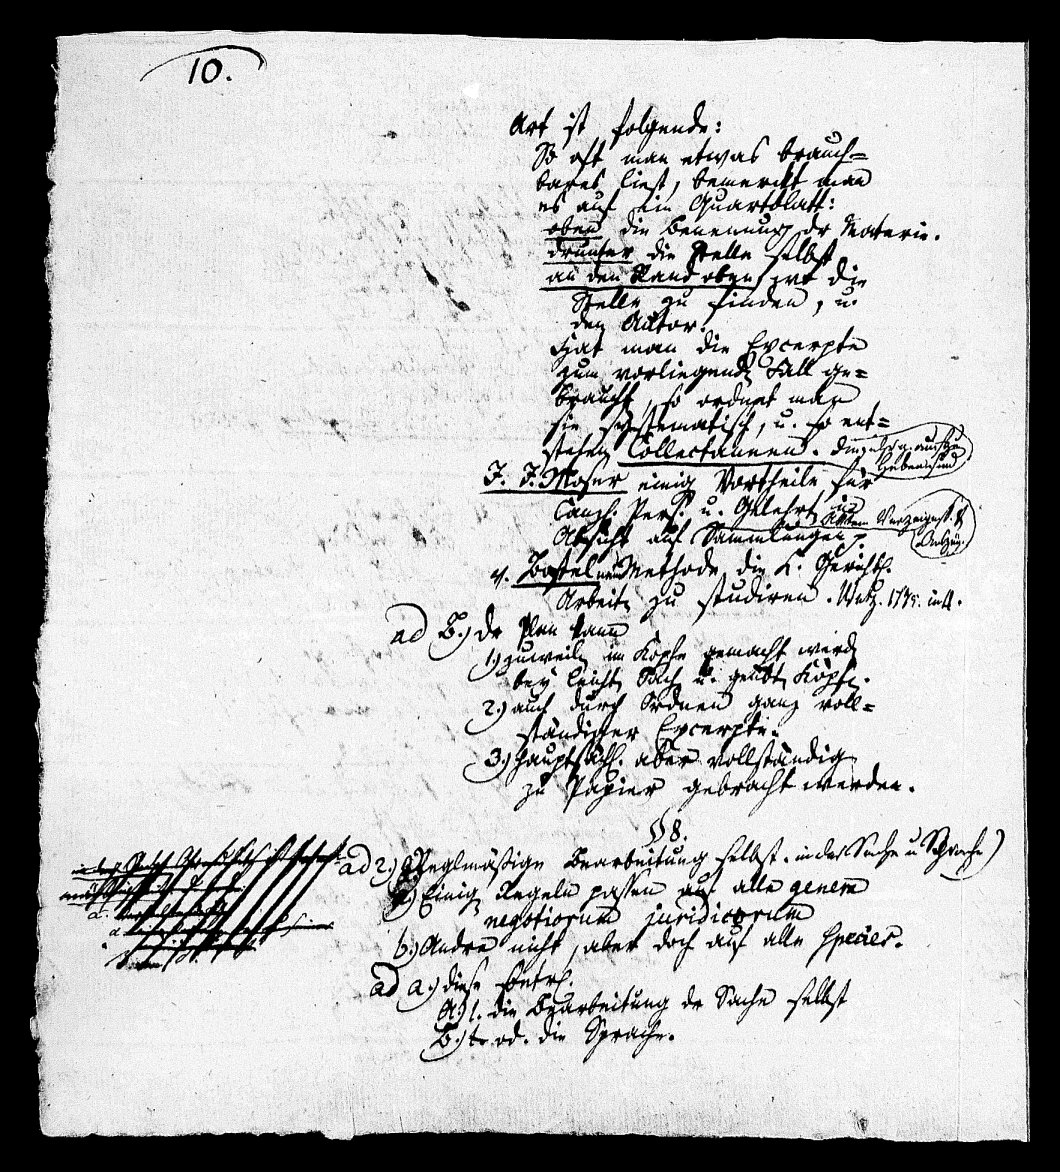 10.
Art ist folgende:
So oft man etwas brauch=
bares liest, bemerckt man
es auf ein Quartblatt:
oben die Benennung der Materie.
drunter die Stelle selbst
an den Rand oben, wo die
Stelle zu finden, u.
den Autor.
Hat man die Excerpte
zum vorliegend Fall ge=
braucht, so ordnet man
sie systematisch, u. so ent=
stehen Collectaneen.
J. J. Moser einig Vortheile für
Canzl. Pers. u. Gelehrt in
Absicht auf Sammlungen p.
v. Bostel neue Methode, die K. Gerichtl.
Arbeit zu studiren. Wetz. in 4.
ad B.) der Plan kann
1.) zuweil im Kopfe gemacht werd
bey leicht Sach u. geübt Köpf.
2.) auch durch Ordnen ganz voll=
ständiger Excerpte.
3.) hauptsächl. aber vollständig
zu Papier gebracht werden.
§ 8.
ad 2.) Reglmäßige Bearbeitung selbst. in der Sache u Sprache)
a.) Einig Regeln passen auf alle genera
negotiorum juridicorum
b.) Andre nicht, aber doch auf alle species.
ad a.) diese betref.
A.) 1. die Bearbeitung der Sache selbst
B.) od. die Sprache.